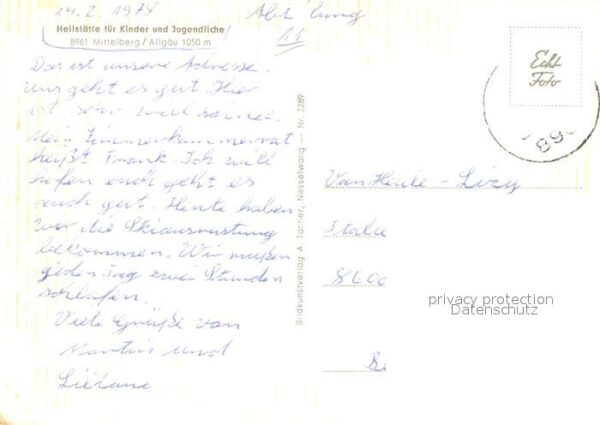 14.2.1978
Abt
11
Heilstätte für Kinder und Jugendliche
8961 Mittelberg / Allgäu 1050 m
Das ist unsere Adresse.
Uns geht es gut. Hier
ist sehr viel
Mein Zimmerkammerrat
heißt Frank. Ich will
hofen euch geht es
auch gut. Heute haben
wir die Skiausrüstung
bekommen. Wir müßen
jeden Tag zwei Stunden
schlafen.
Viele Grüße von
Martin und
Liliane
Bildkunstverlag A. Tanner, Nesselwang — Nr. 5289
Echt
Foto
Lizy
8606
privacy protection
Datenschutz